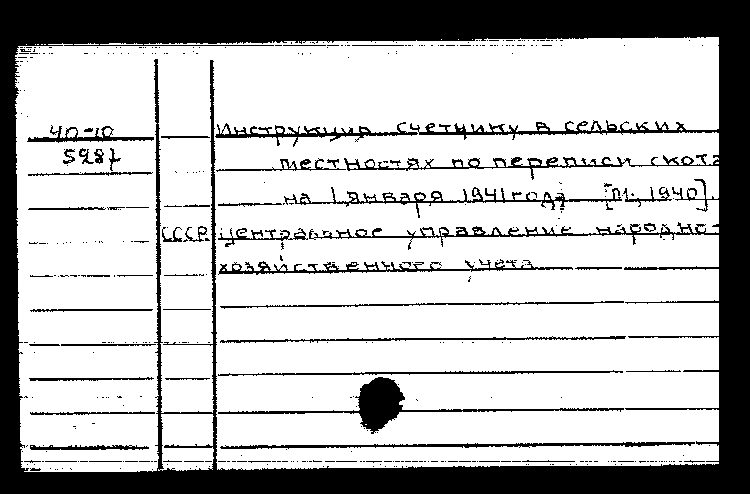 40-10 Инструкция счетчику в сельских
5987 местностях по переписи скота
на 1 января 1941 года [М., 1940].
СССР. Центральное управление народно-
хозяйственного учета